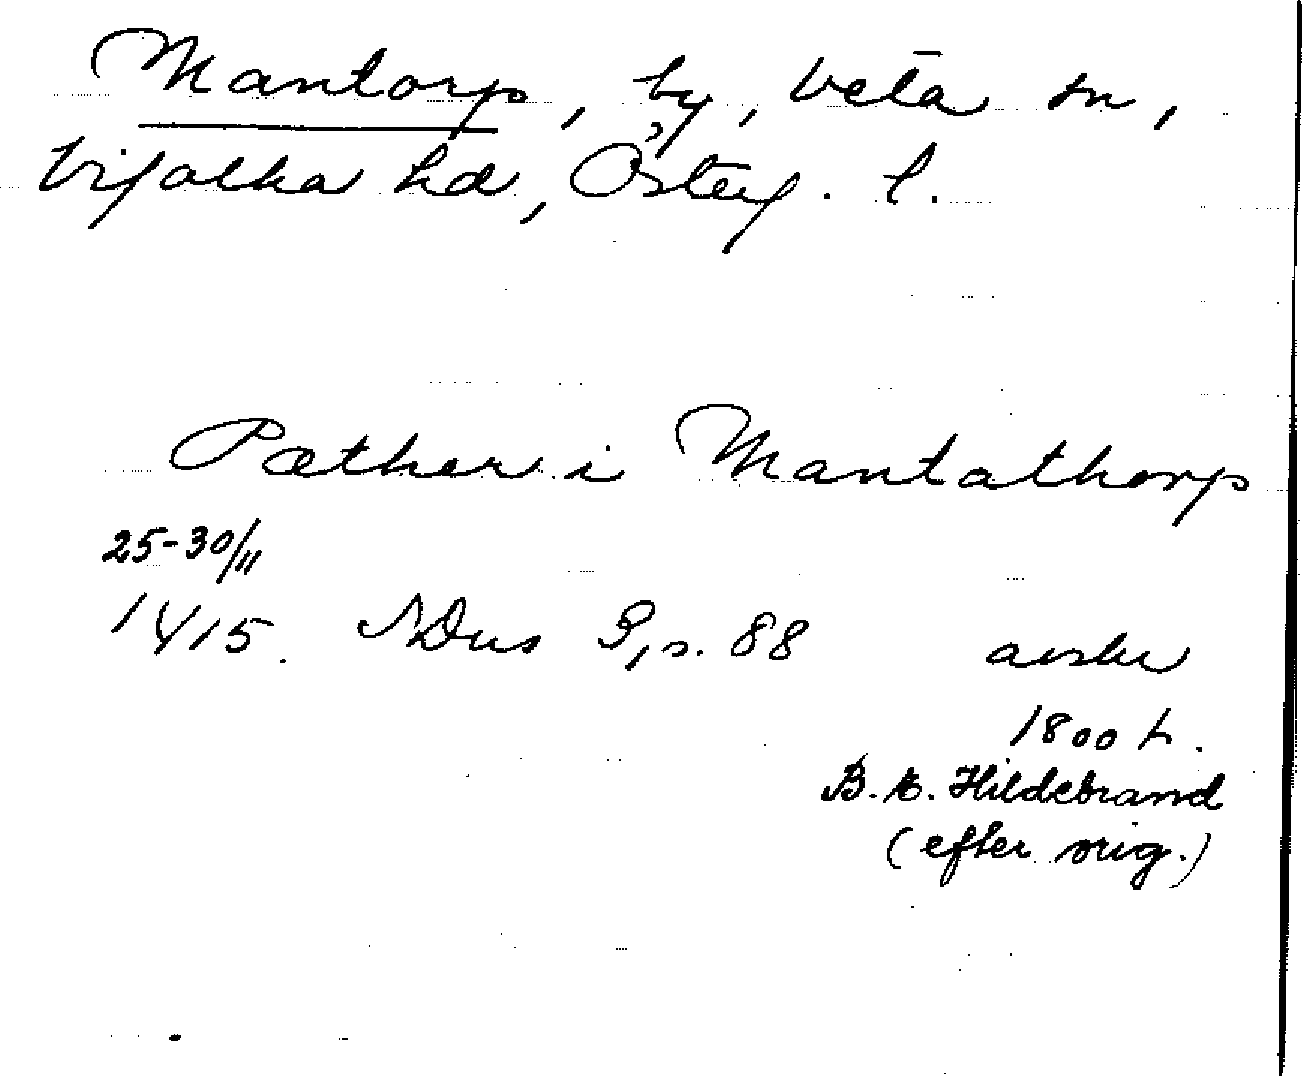 Mantorp, by, Veta sn,
Vifolka hd, Österg. l.
Pæther i Mantathorp
25-30/11
1415. NDns I, s. 88 avskr
1800 t.
B. E. Hildebrand
(efter orig.)